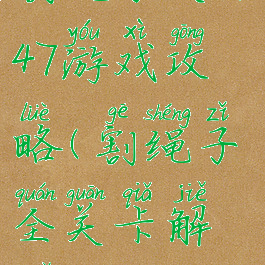 yóu xì gōng
47游戏攻
lüè gē shéng zǐ
略(割绳子
quán guān qiǎ jiě
全关卡解